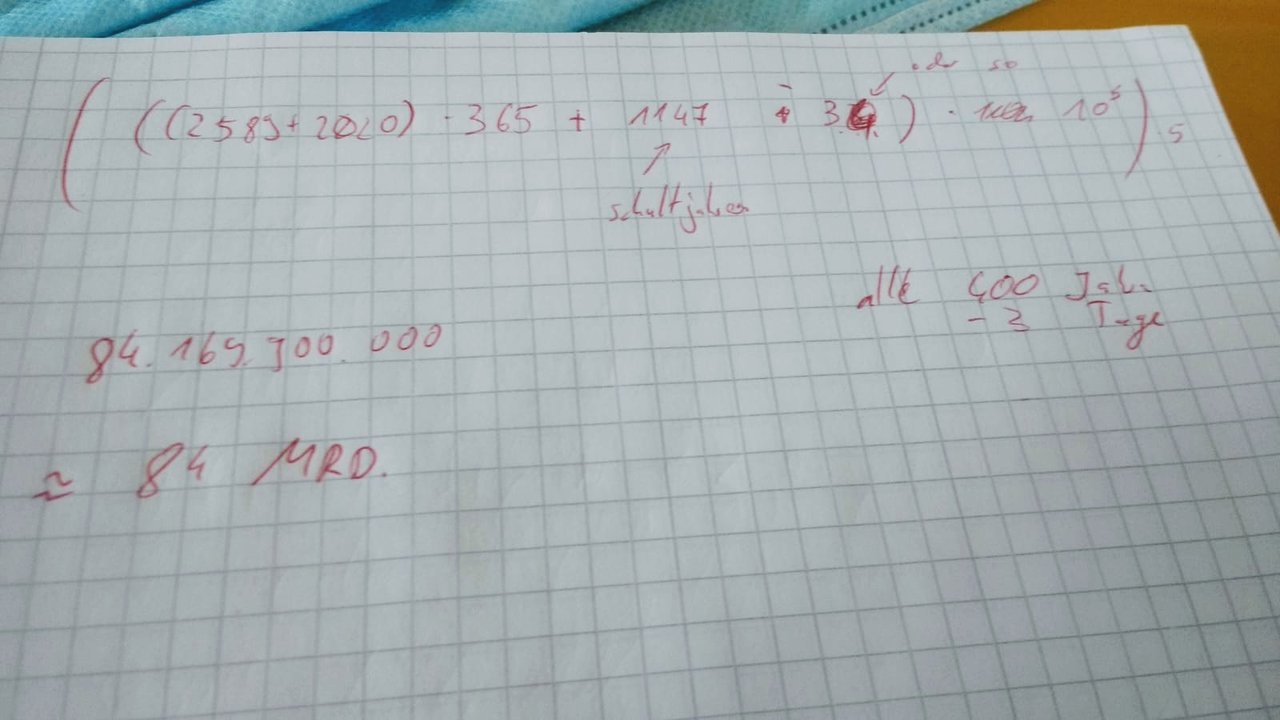 oder so
( ((2589+2020) · 365 + 1147 - 34.) · 10⁵ ) · 5
schaltjahre
alle 400 Jahre
- 3 Tage
84.169.900.000
≈ 84 MRD.